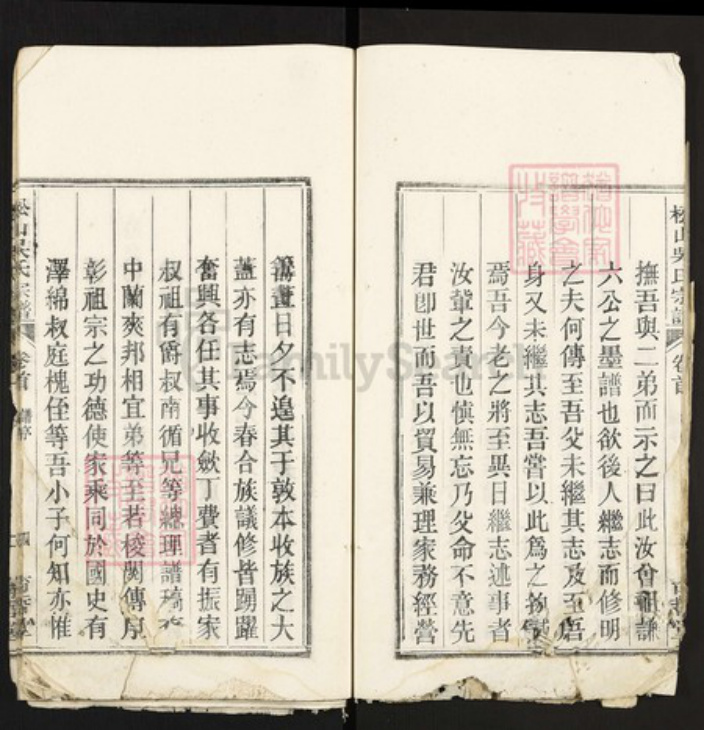 松山吳氏宗譜 卷首
撫吾與二弟而示之曰此汝曾祖謙
六公之墨譜也欲後人繼志而修明
之夫何傳至吾父未繼其志及至吾
身又未繼其志吾嘗以此爲之拘
焉吾今老之將至異日繼志述事者
汝輩之責也愼無忘乃父命不意先
君卽世而吾以貿易兼理家務經營
籌畫日夕不遑其于敦本收族之大
蓋亦有志焉今春合族議修皆踴躍
奮興各任其事收斂丁費者有振家
叔祖有爵叔南循兄等總理譜稿
中蘭爽邦相宜弟等至若梭閱傳
彰祖宗之功德使家乘同於國史有
澤綿叔庭槐侄等吾小子何知亦惟
松山吳氏宗譜 卷首 譜序
FamilySearch